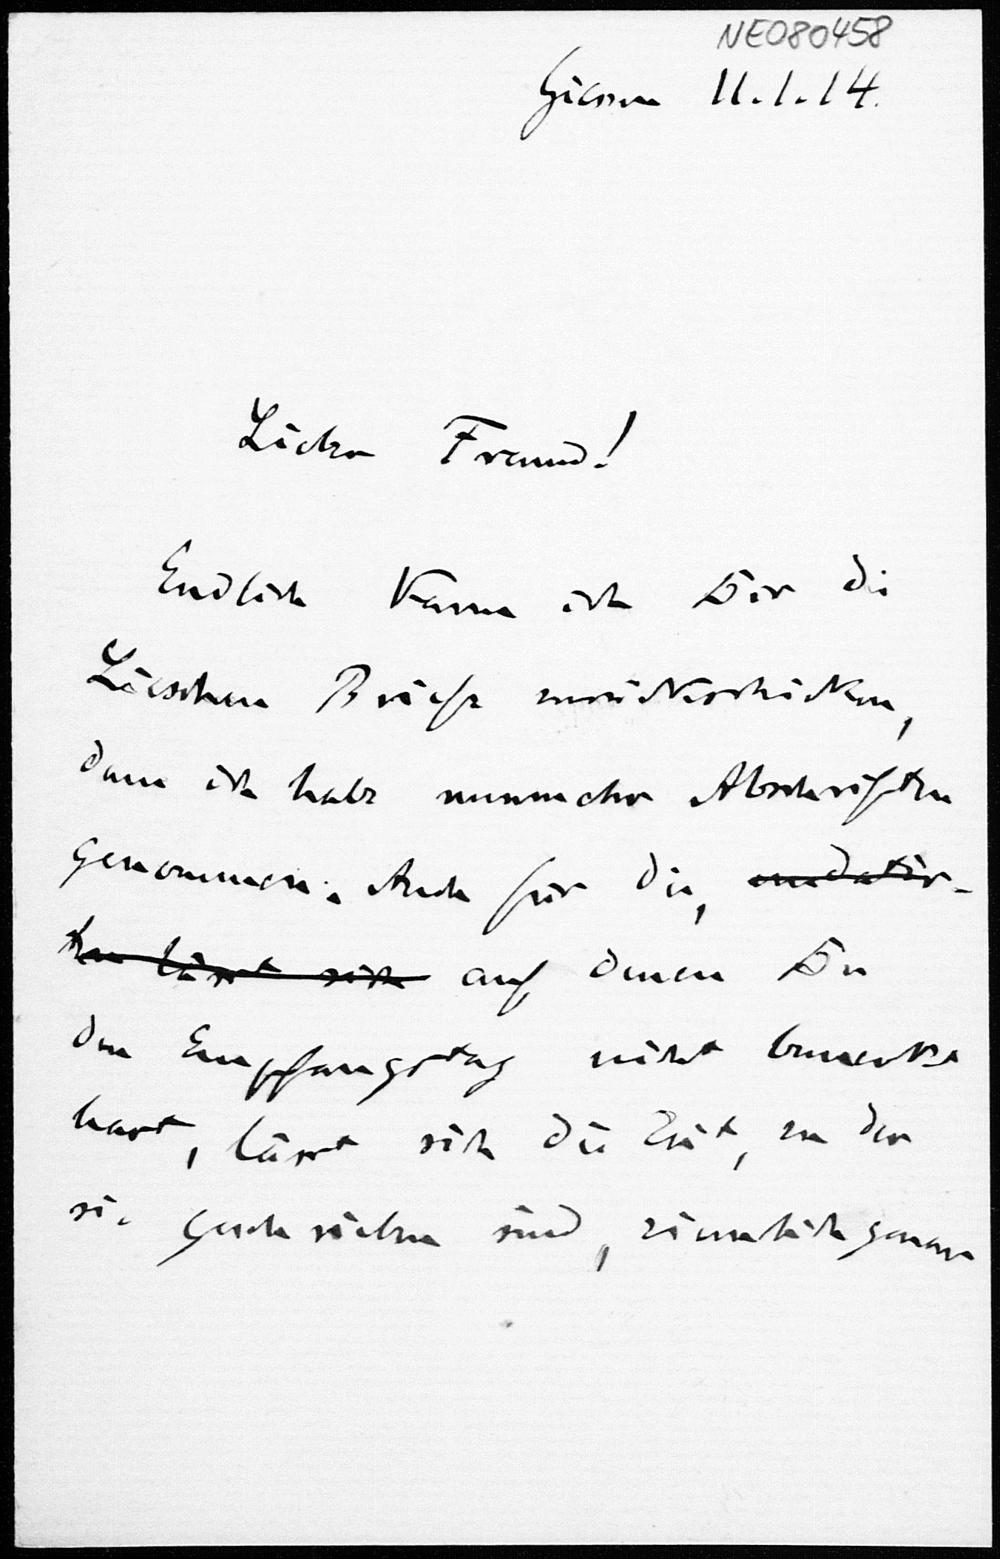 NE080458
Giessen 11.1.14.
Lieber Freund!
Endlich kann ich Dir die
Lieschen Briefe zurückschicken,
denn ich habe nunmehr Abschriften
genommen. Auch für die, undatir-
ten lässt sich auf denen Du
den Empfangstag nicht bemerkt
hast, lässt sich die Zeit, zu der
sie geschrieben sind, ziemlich genau